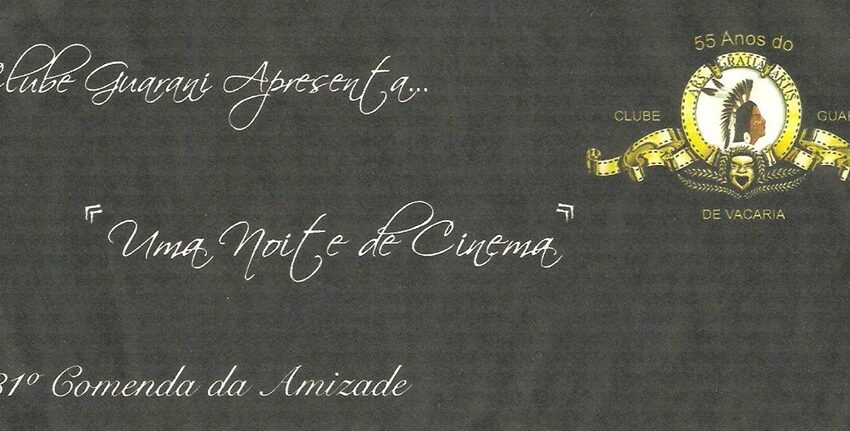 Clube Guarani Apresenta...
55 Anos do
ARS GRATIA ARTIS
CLUBE GUAR
"Uma Noite de Cinema"
DE VACARIA
31º Comenda da Amizade